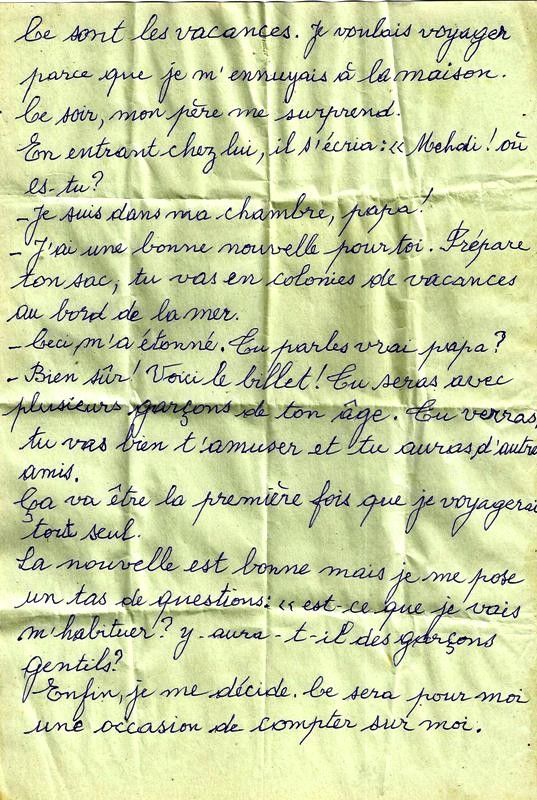 Ce sont les vacances. Je voulais voyager
parce que je m'ennuyais à la maison.
Ce soir, mon père me surprend.
En entrant chez lui, il s'écria : « Mehdi ! où
es-tu ?
- Je suis dans ma chambre, papa !
- J'ai une bonne nouvelle pour toi. Prépare
ton sac, tu vas en colonies de vacances
au bord de la mer.
- Ceci m'a étonné. Tu parles vrai papa ?
- Bien sûr ! Voici le billet ! Tu seras avec
plusieurs garçons de ton âge. Tu verras,
tu vas bien t'amuser et tu auras d'autre
amis.
Ça va être la première fois que je voyagerai
tout seul.
La nouvelle est bonne mais je me pose
un tas de questions : « est-ce que je vais
m'habituer ? y-aura-t-il des garçons
gentils ?
Enfin, je me décide. Ce sera pour moi
une occasion de compter sur moi.